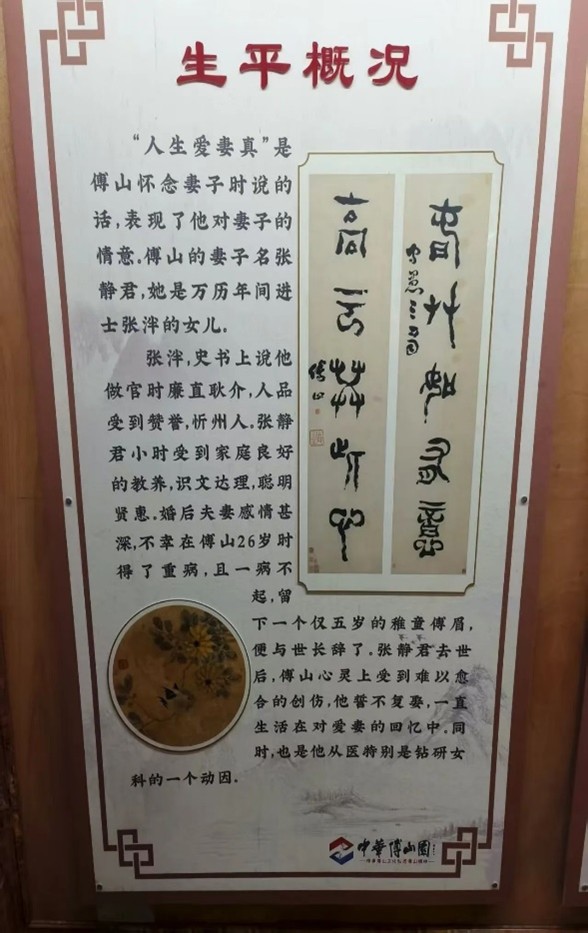 生平概况
“人生爱妻真”是
傅山怀念妻子时说的
话,表现了他对妻子的
情意。傅山的妻子名张
静君,她是万历年间进
士张泮的女儿。
张泮,史书上说他
做官时廉直耿介,人品
受到赞誉,忻州人。张静
君小时受到家庭良好
的教养,识文达理,聪明
贤惠。婚后夫妻感情甚
深,不幸在傅山26岁时
得了重病,且一病不
起,留
下一个仅五岁的稚童傅眉,
便与世长辞了。张静君去世
后,傅山心灵上受到难以愈
合的创伤,他誓不复娶,一直
生活在对爱妻的回忆中。同
时,也是他从医特别是钻研女
科的一个动因。
傅山
中华傅山园